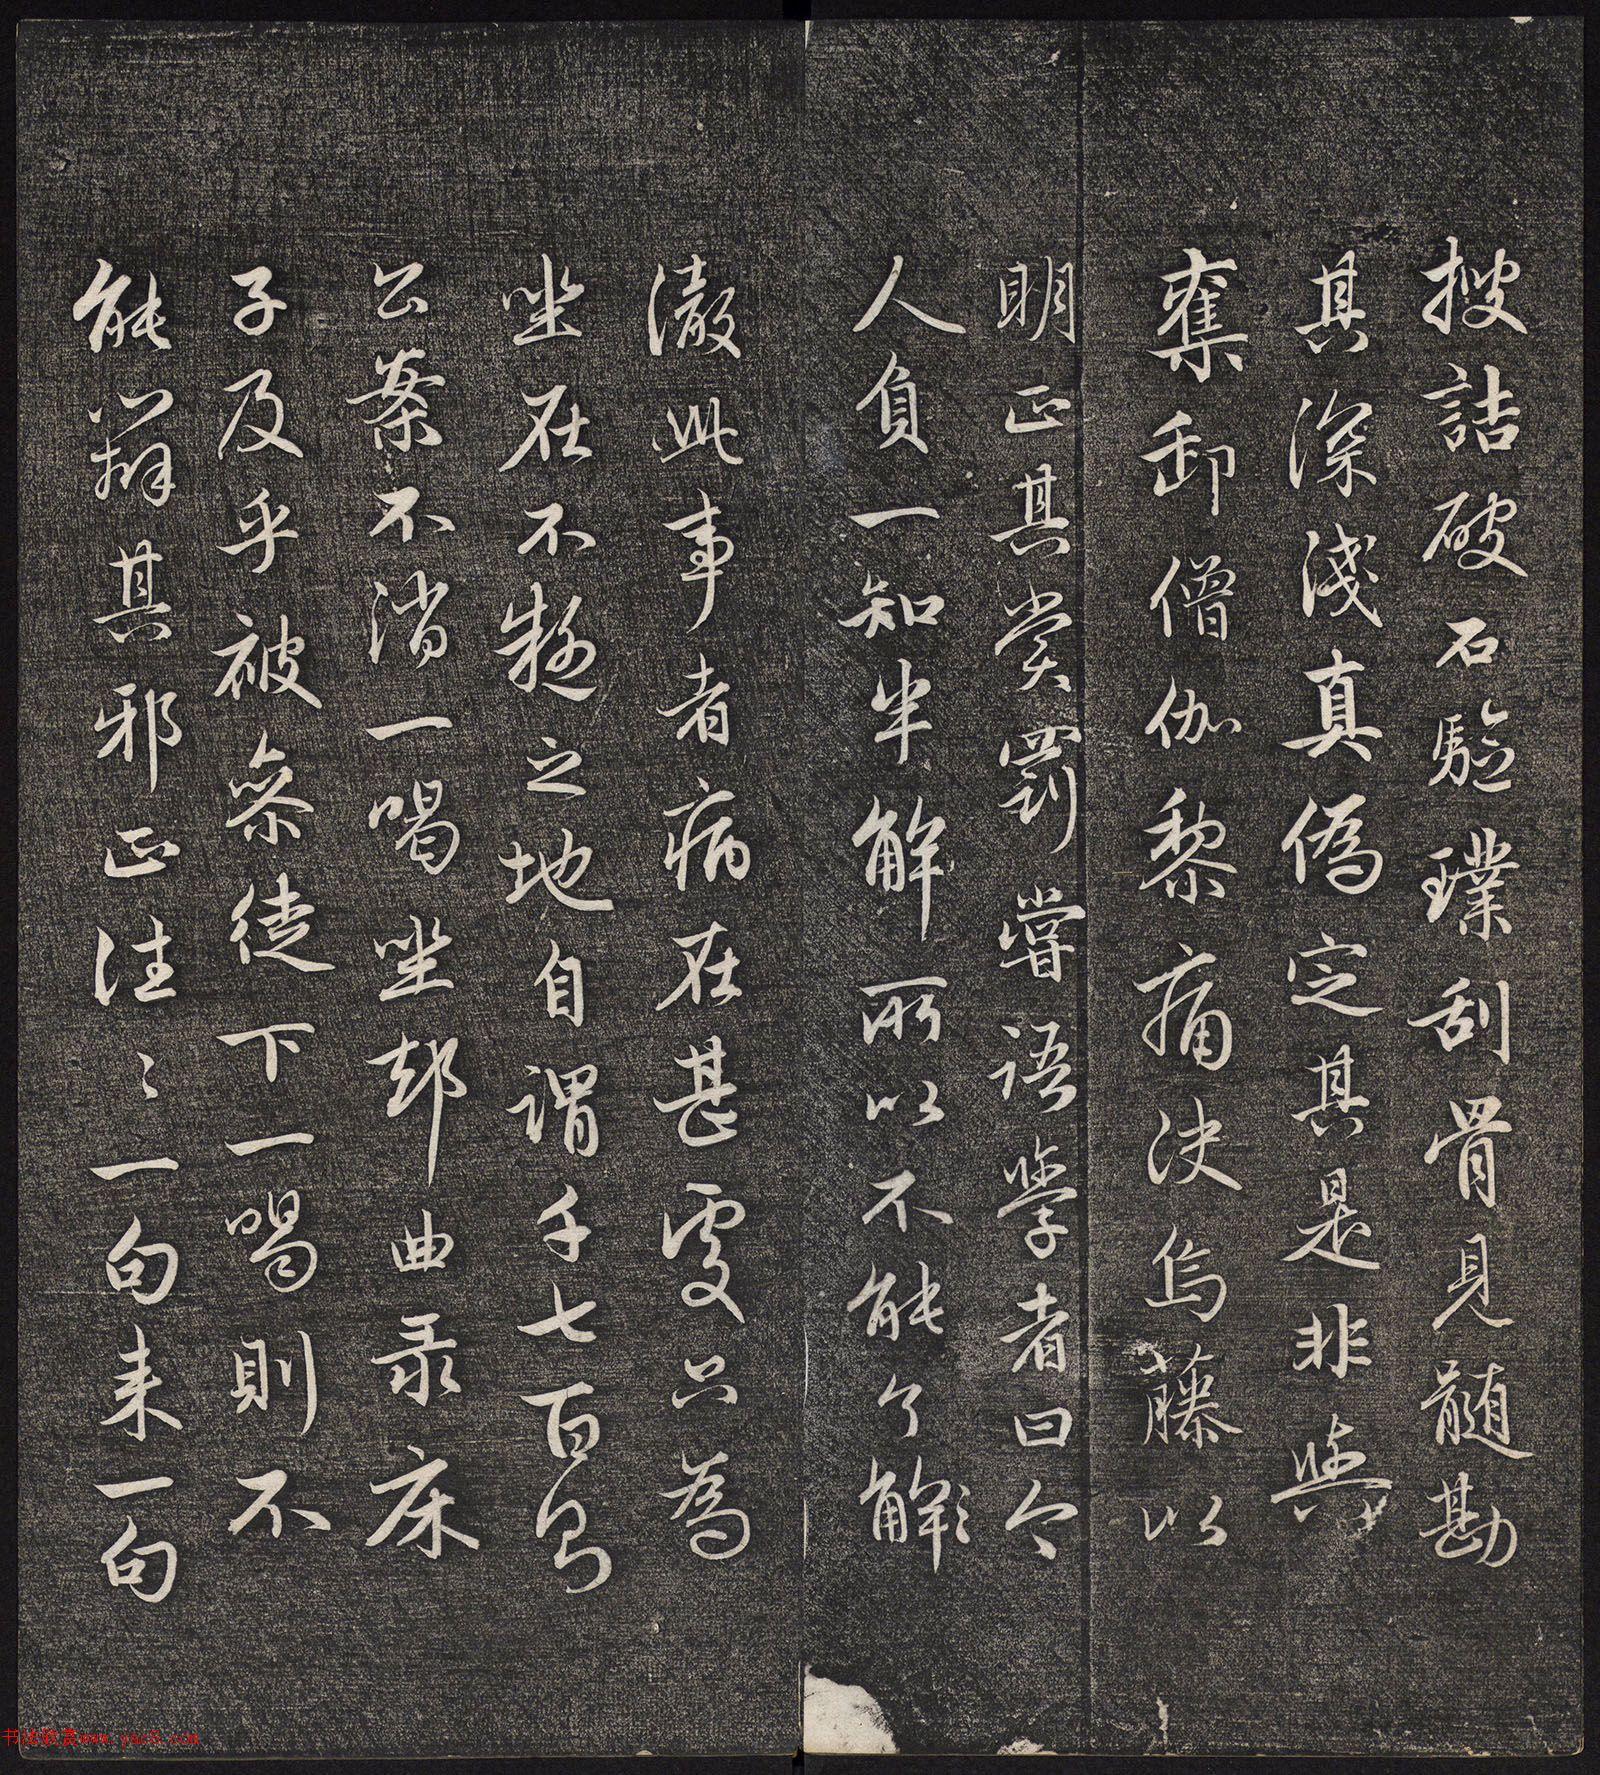 搜詰破石驗璞刮骨見髓勘
其深淺真偽定其是非與
奪卸僧伽黎痛決烏藤以
明正其賞罰嘗語學者曰今
人負一知半解所以不能了解
澈此事者病在甚處只為
坐在不疑之地自謂千七百
公案不消一喝坐却曲彔床
子及乎被參徒下一喝則不
能辯其邪正往〻一句來一句
书法欣赏www.yac8.com